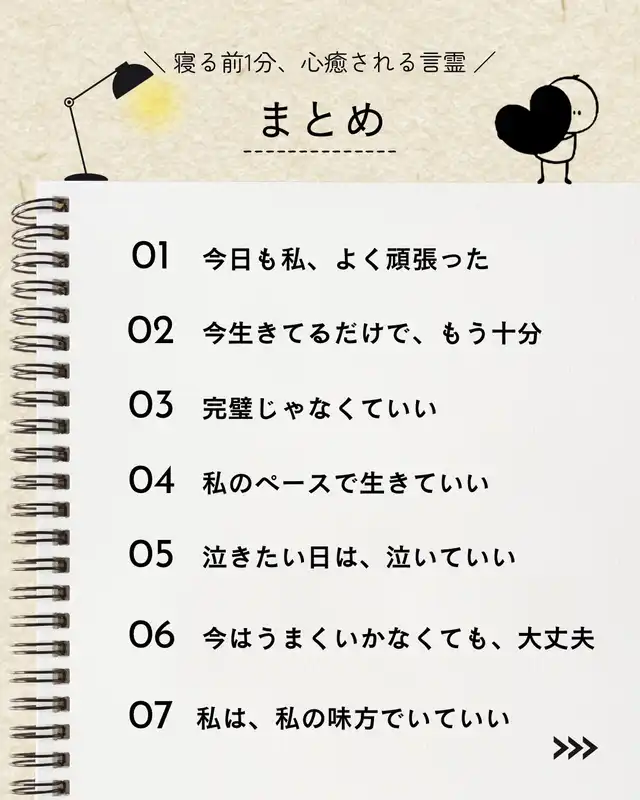 \ 寝る前1分、心癒される言霊 /
まとめ
01 今日も私、よく頑張った
02 今生きてるだけで、もう十分
03 完璧じゃなくていい
04 私のペースで生きていい
05 泣きたい日は、泣いていい
06 今はうまくいかなくても、大丈夫
07 私は、私の味方でいていい
>>>